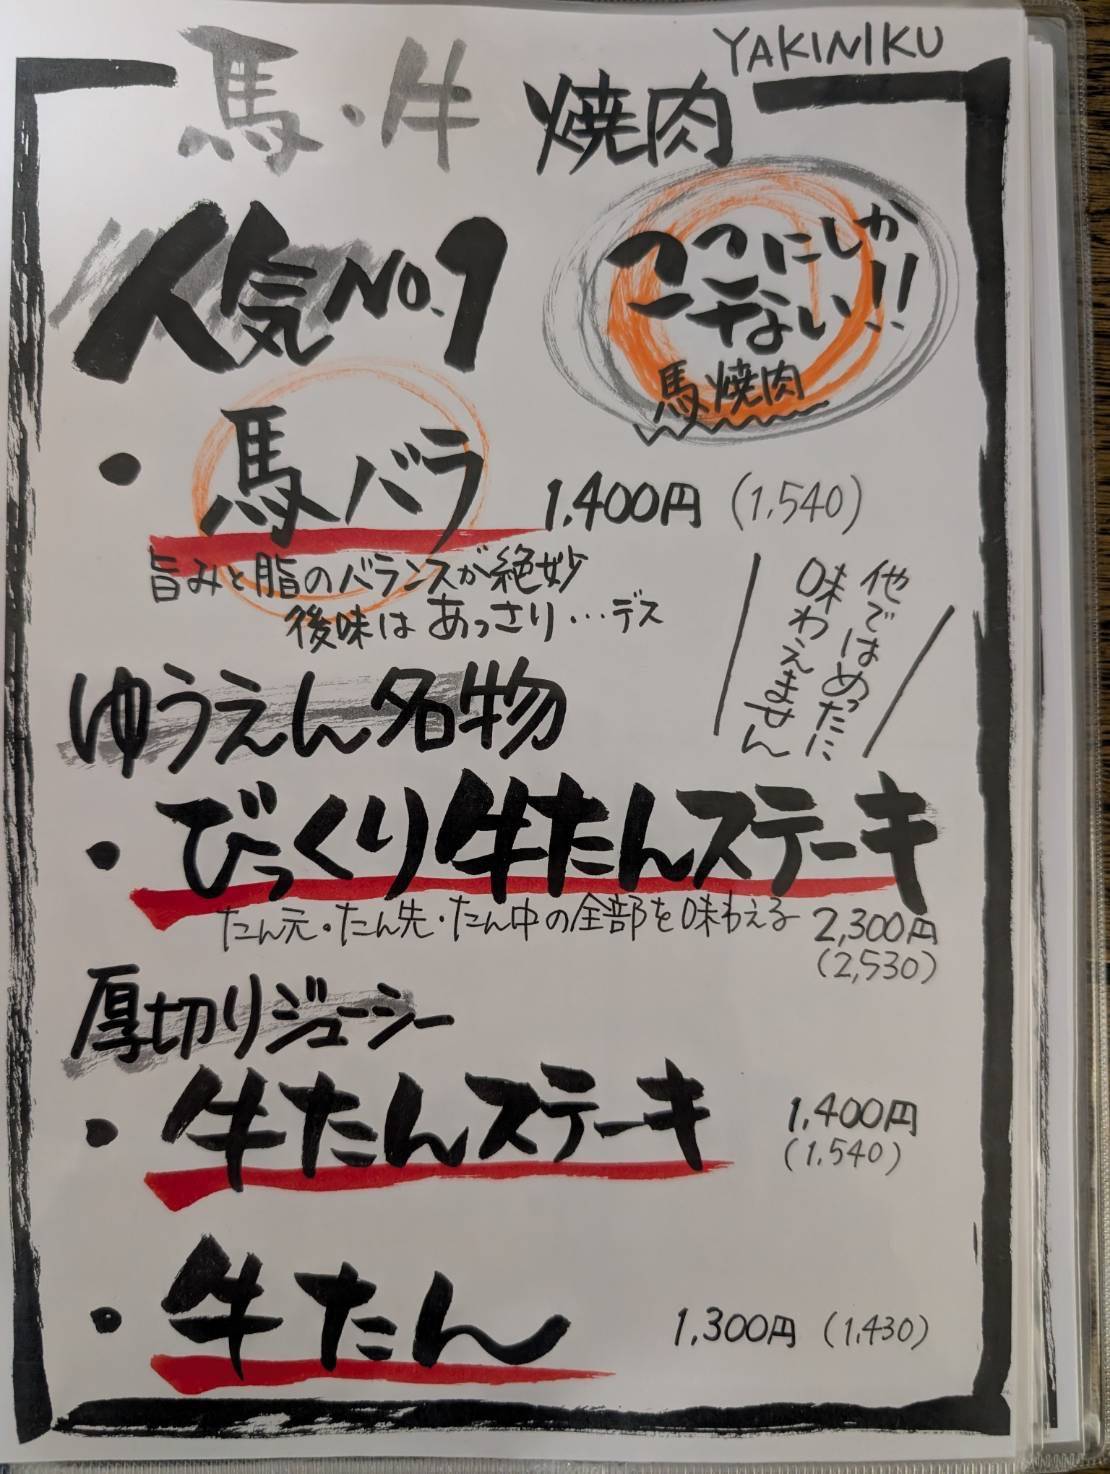 YAKINIKU
馬・牛 焼肉
人気No.1
ココにしか
ない!!
馬焼肉
・馬バラ 1,400円 (1,540)
旨みと脂のバランスが絶妙
後味はあっさり…デス
他ではめったに
味わえません
ゆうえん名物
・びっくり牛たんステーキ
たん元・たん先・たん中の全部を味わえる 2,300円
(2,530)
厚切りジューシー
・牛たんステーキ 1,400円
(1,540)
・牛たん 1,300円 (1,430)